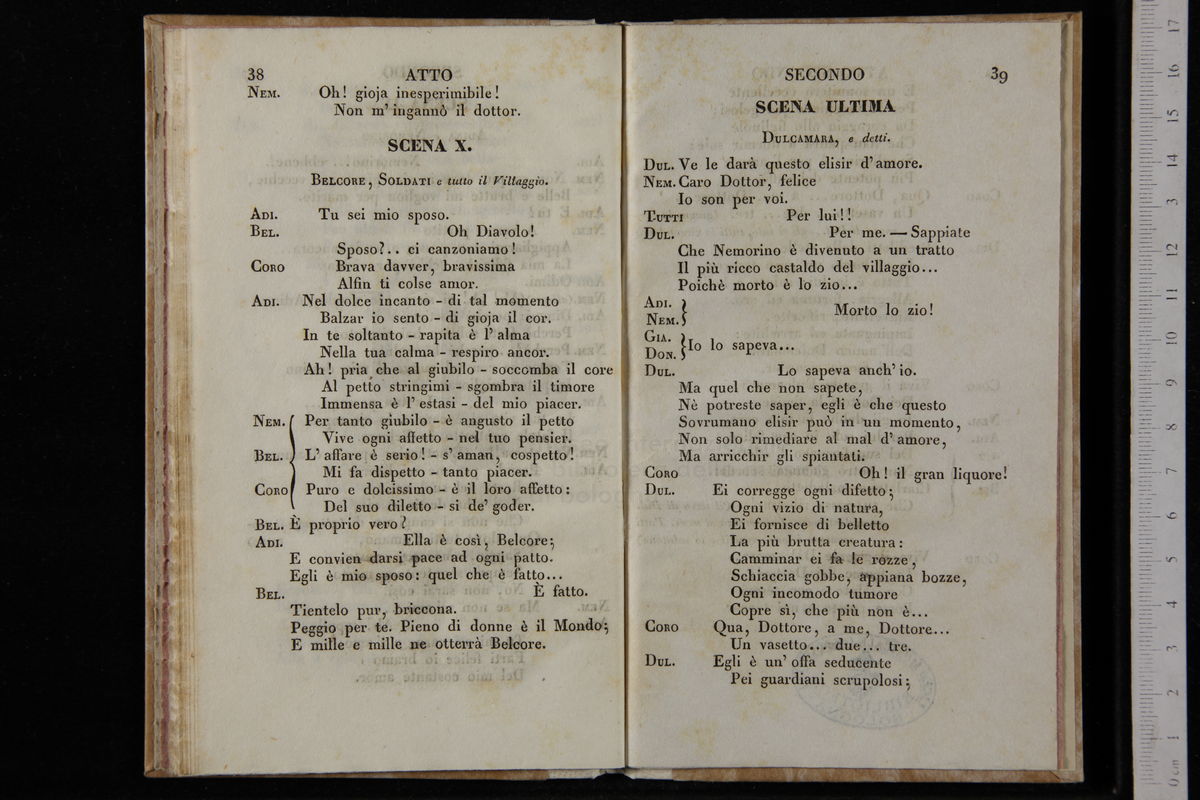 38 ATTO
NEM. Oh! gioja inesperimibile!
Non m' ingannò il dottor.
SCENA X.
BELCORE, SOLDATI e tutto il Villaggio.
ADI. Tu sei mio sposo.
BEL. Oh Diavolo!
Sposo?.. ci canzoniamo!
CORO Brava davver, bravissima
Alfin ti colse amor.
ADI. Nel dolce incanto - di tal momento
Balzar io sento - di gioja il cor.
In te soltanto - rapita è l' alma
Nella tua calma - respiro ancor.
Ah! pria che al giubilo - soccomba il core
Al petto stringimi - sgombra il timore
Immensa è l' estasi - del mio piacer.
NEM. Per tanto giubilo - è angusto il petto
Vive ogni affetto - nel tuo pensier.
BEL. L' affare è serio! - s' aman, cospetto!
Mi fa dispetto - tanto piacer.
CORO Puro e dolcissimo - è il loro affetto:
Del suo diletto - si de' goder.
BEL. È proprio vero?
ADI. Ella è così, Belcore;
E convien darsi pace ad ogni patto.
Egli è mio sposo: quel che è fatto...
BEL. È fatto.
Tientelo pur, briccona.
Peggio per te. Pieno di donne è il Mondo;
E mille e mille ne otterrà Belcore.
SECONDO 39
SCENA ULTIMA
DULCAMARA, e detti.
DUL. Ve le darà questo elisir d' amore.
NEM. Caro Dottor, felice
Io son per voi.
TUTTI Per lui!!
DUL. Per me. — Sappiate
Che Nemorino è divenuto a un tratto
Il più ricco castaldo del villaggio...
Poichè morto è lo zio...
ADI.
NEM. Morto lo zio!
GIA.
DON. Io lo sapeva...
DUL. Lo sapeva anch' io.
Ma quel che non sapete,
Nè potreste saper, egli è che questo
Sovrumano elisir può in un momento,
Non solo rimediare al mal d' amore,
Ma arricchir gli spiantati.
CORO Oh! il gran liquore!
DUL. Ei corregge ogni difetto;
Ogni vizio di natura,
Ei fornisce di belletto
La più brutta creatura:
Camminar ei fa le rozze,
Schiaccia gobbe, appiana bozze,
Ogni incomodo tumore
Copre sì, che più non è...
CORO Qua, Dottore, a me, Dottore...
Un vasetto... due... tre.
DUL. Egli è un' offa seducente
Pei guardiani scrupolosi;